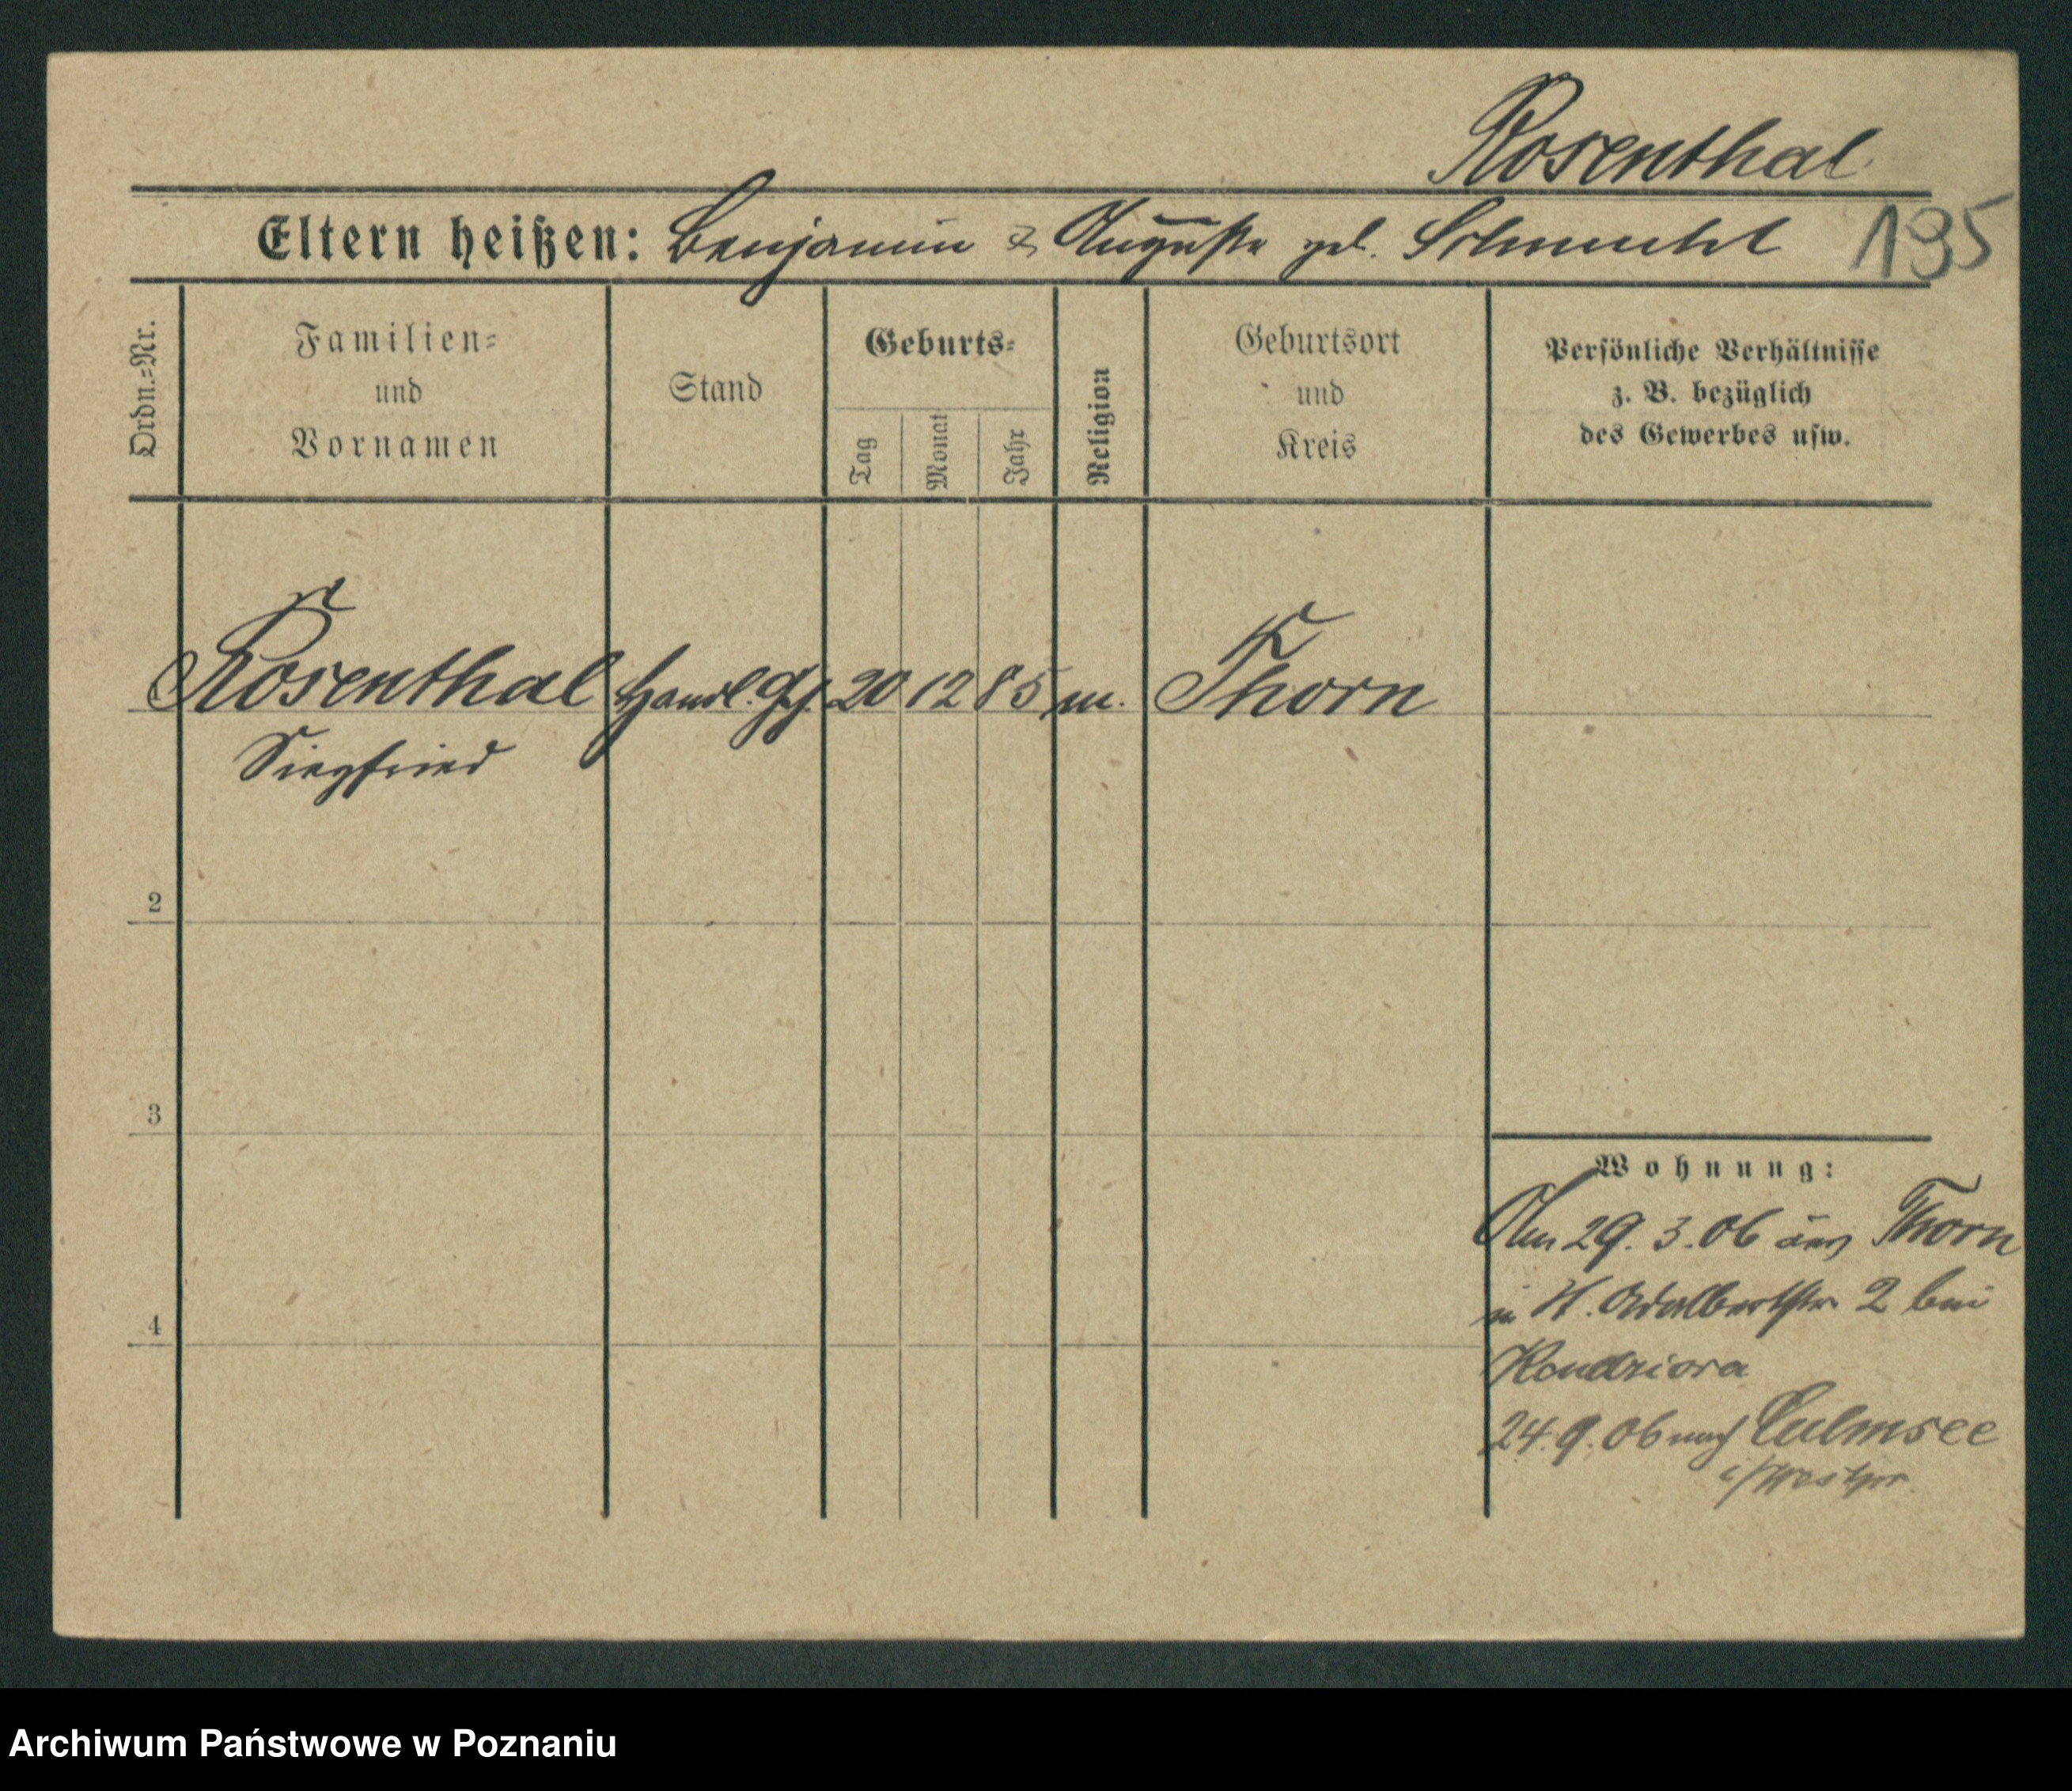 Rosenthal
Eltern heißen: Benjamin & Auguste geb. 195
Ordn.-Nr.
Familien-
und
Vornamen
Stand
Geburts-
Tag
Monat
Jahr
Religion
Geburtsort
und
Kreis
Persönliche Verhältnisse
z. B. bezüglich
des Gewerbes usw.
Rosenthal Handl. Gh. 20 12 85 m. Thorn
Siegfried
2
3
4
Wohnung:
Am 29. 3. 06 aus Thorn
in H. Adalbertstr 2 bei
Kendziora
24. 9. 06 nach Culmsee
i/Westpr.
Archiwum Państwowe w Poznaniu